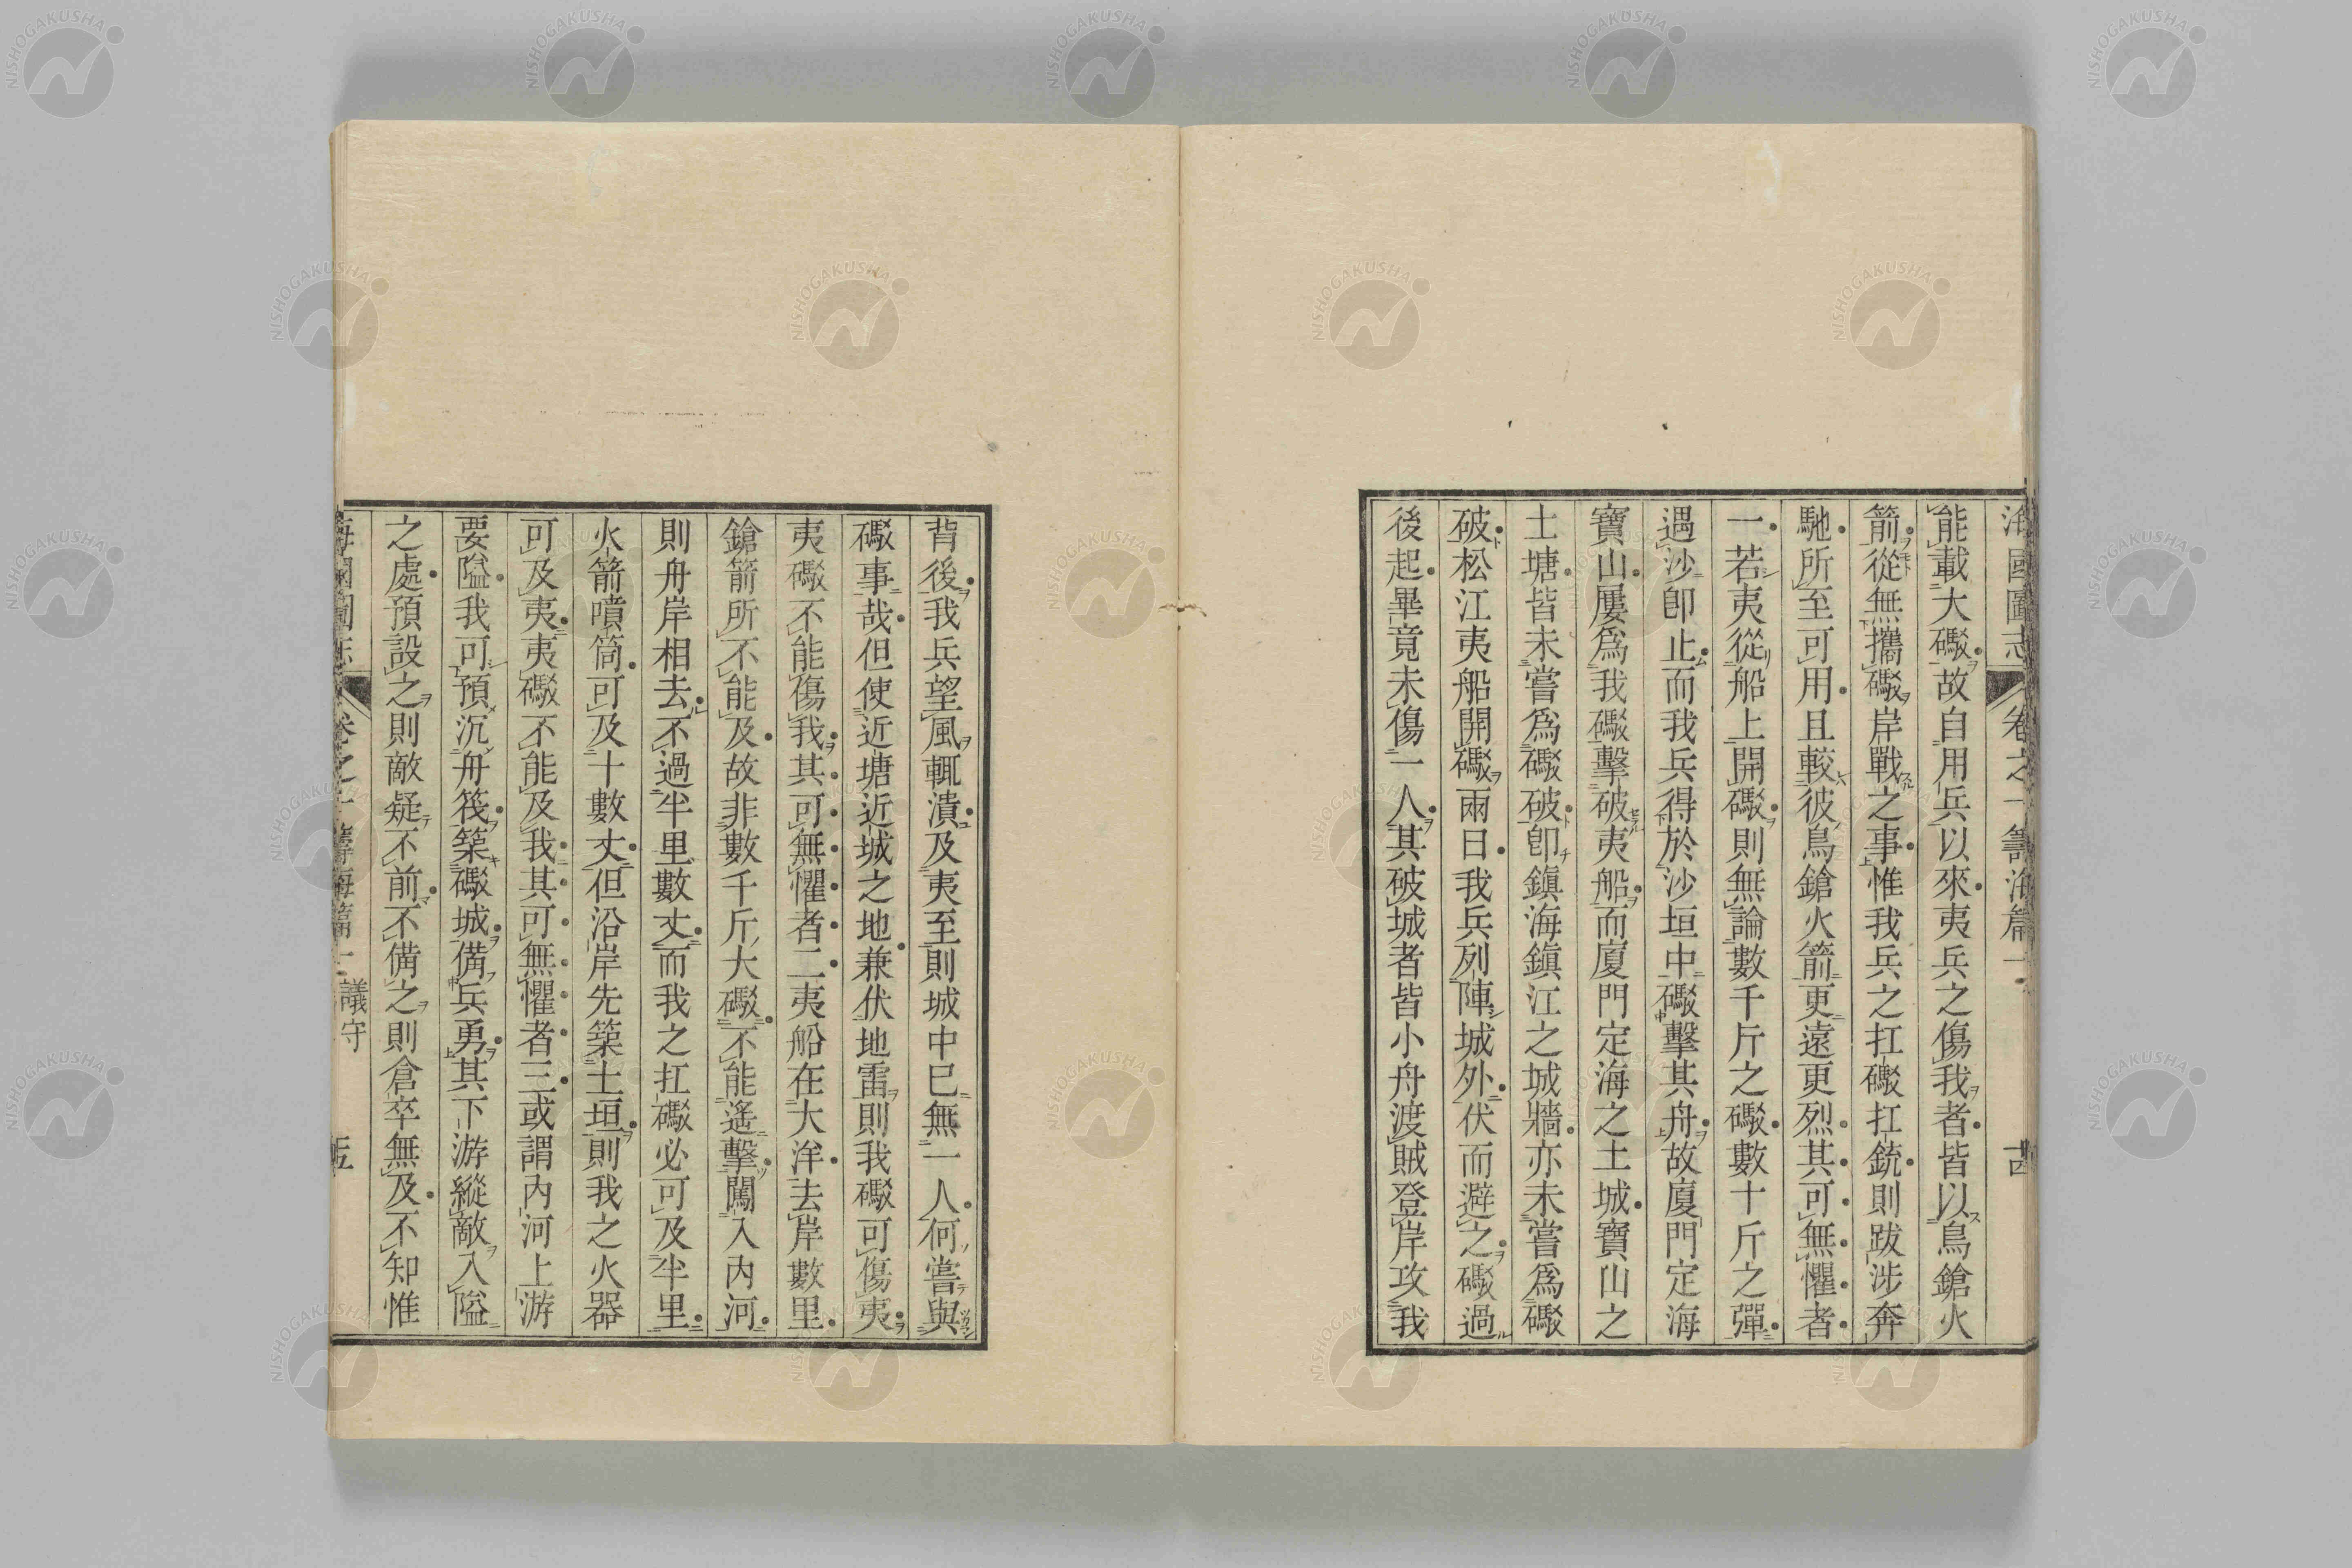 海國圖志 卷之一 籌海篇一 十四
能載大礮故自用兵以來夷兵之傷我者皆以鳥鎗火
箭從無攜礮岸戰之事惟我兵之扛礮扛銃則跋涉奔
馳所至可用且較彼鳥鎗火箭更遠更烈其可無懼者
一若夷從船上開礮則無論數千斤之礮數十斤之彈
遇沙卽止而我兵得於沙垣中礮擊其舟故廈門定海
寶山屢爲我礮擊破夷船而廈門定海之土城寶山之
土塘皆未嘗爲礮破卽鎭海鎭江之城牆亦未嘗爲礮
破松江夷船開礮兩日我兵列陣城外伏而避之礮過
後起畢竟未傷一人其破城者皆小舟渡賊登岸攻我
背後我兵望風輒潰及夷至則城中已無一人何嘗與
礮事哉但使近塘近城之地兼伏地雷則我礮可傷夷
夷礮不能傷我其可無懼者二夷船在大洋去岸數里
鎗箭所不能及故非數千斤大礮不能遙擊闖入內河
則舟岸相去不過半里數丈而我之扛礮必可及半里
火箭噴筒可及十數丈但沿岸先築土垣則我之火器
可及夷夷礮不能及我其可無懼者三或謂內河上游
要隘我可預沉舟筏築礮城備兵勇其下游縱敵入隘
之處預設之則敵疑不前不備之則倉卒無及不知惟
海國圖志 卷之一 籌海篇一 議守 十五
NISHOGAKUSHA